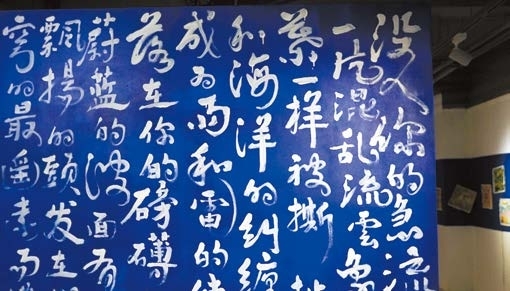 没入你的急流
一片混乱流云象
葉一样被撕
和海洋的纠缠
成为雨和雷的使
落在你的磅礴
蔚蓝的波面有
飄揚的頭发在
穹的最遥远而